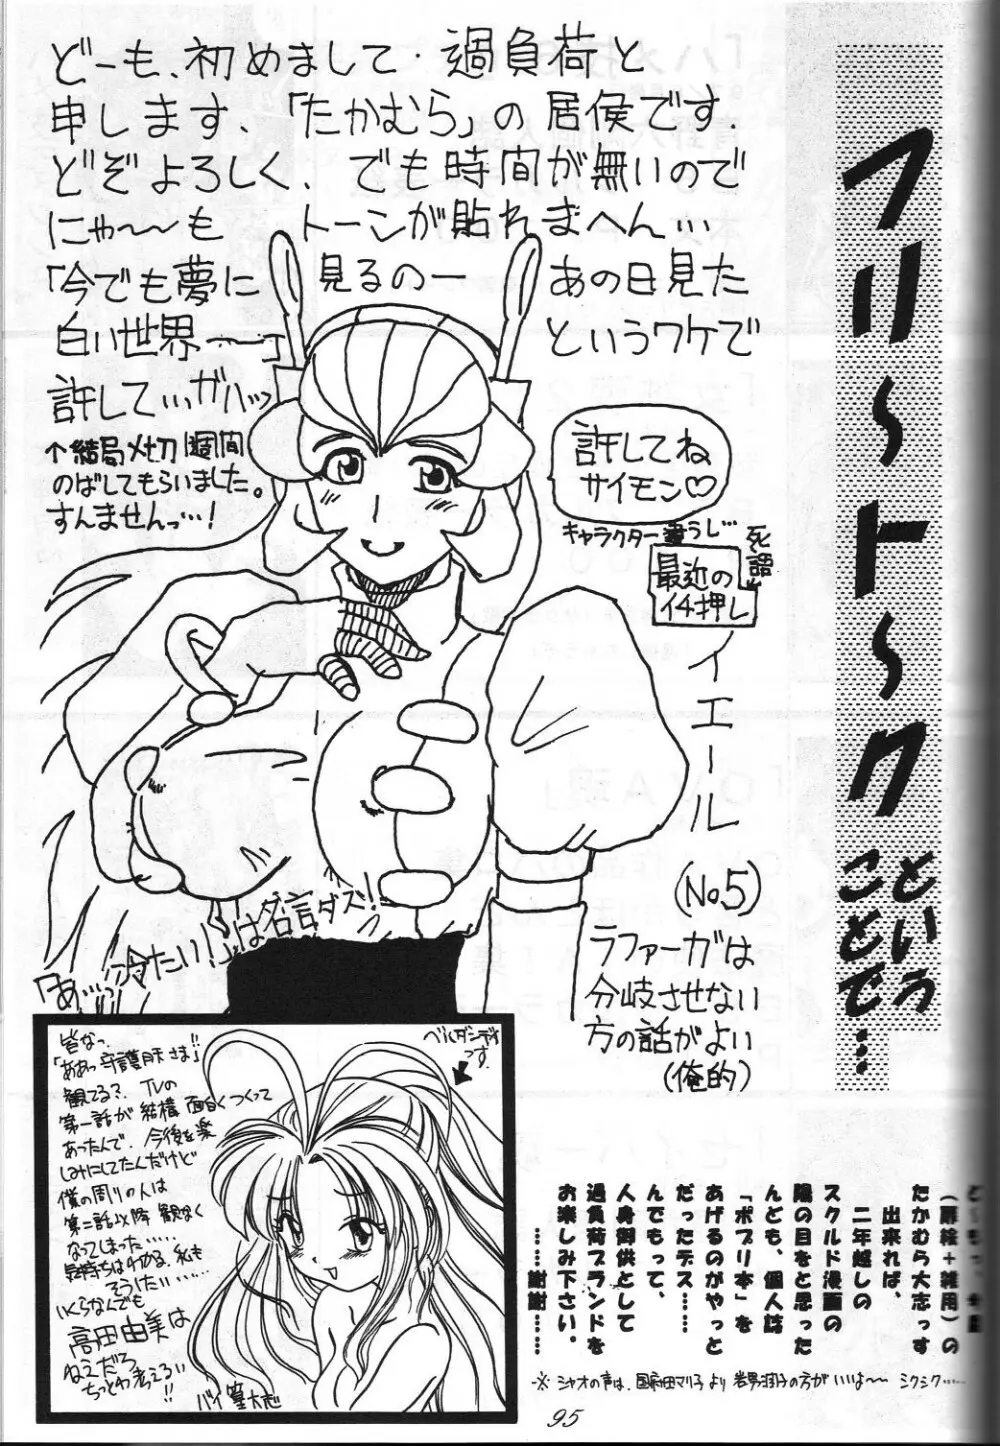 フリ〜ト〜ク
という
ことで…
どーも、初めまして・過負荷と
申します、「たかむら」の居候です.
どぞよろしく、でも時間が無いので
にゃ〜〜も トーンが貼れまへん…
「今でも夢に見るのー あの日見た
白い世界〜〜」 というワケで
許して…ガハッ
↑結局〆切1週間
のばしてもらいました。
すんませんっ…!
許してね
サイモン♡
キャラクター違うし…
死語
最近の
イチ押し
イエール
(No5)
ラファーガは
分岐させない
方の話がよい
(俺的)
「あ…っ冷たい!」は名言ダス!
皆なっ
「ああっ守護月天さま!!
観てる?. TVの
第一話が結構面白くつくって
あったんで、今後を楽
しみにしてたんだけど
僕の周りの人は
第二話以降観なく
なってしまった……
気持ちはわかる、私も
そうしたい……
いくらなんでも
高田由美は
ねえだろ
ちっとわ考えろい
!!
バイ篁大志
ベルダンディ
っす.
(扉絵+雑用)の
たかむら大志っす
出来れば、
二年越しの
スクルド漫画の
陽の目をと思った
んども、個人誌
「ポプリ本」を
あげるのがやっと
だったデス……
んでもって、
人身御供として
過負荷ブランドを
お楽しみ下さい。
……謝謝……
-※ シャオの声は、国府田マリ子より 岩男潤子の方がいいよ〜〜 シクシク……
95